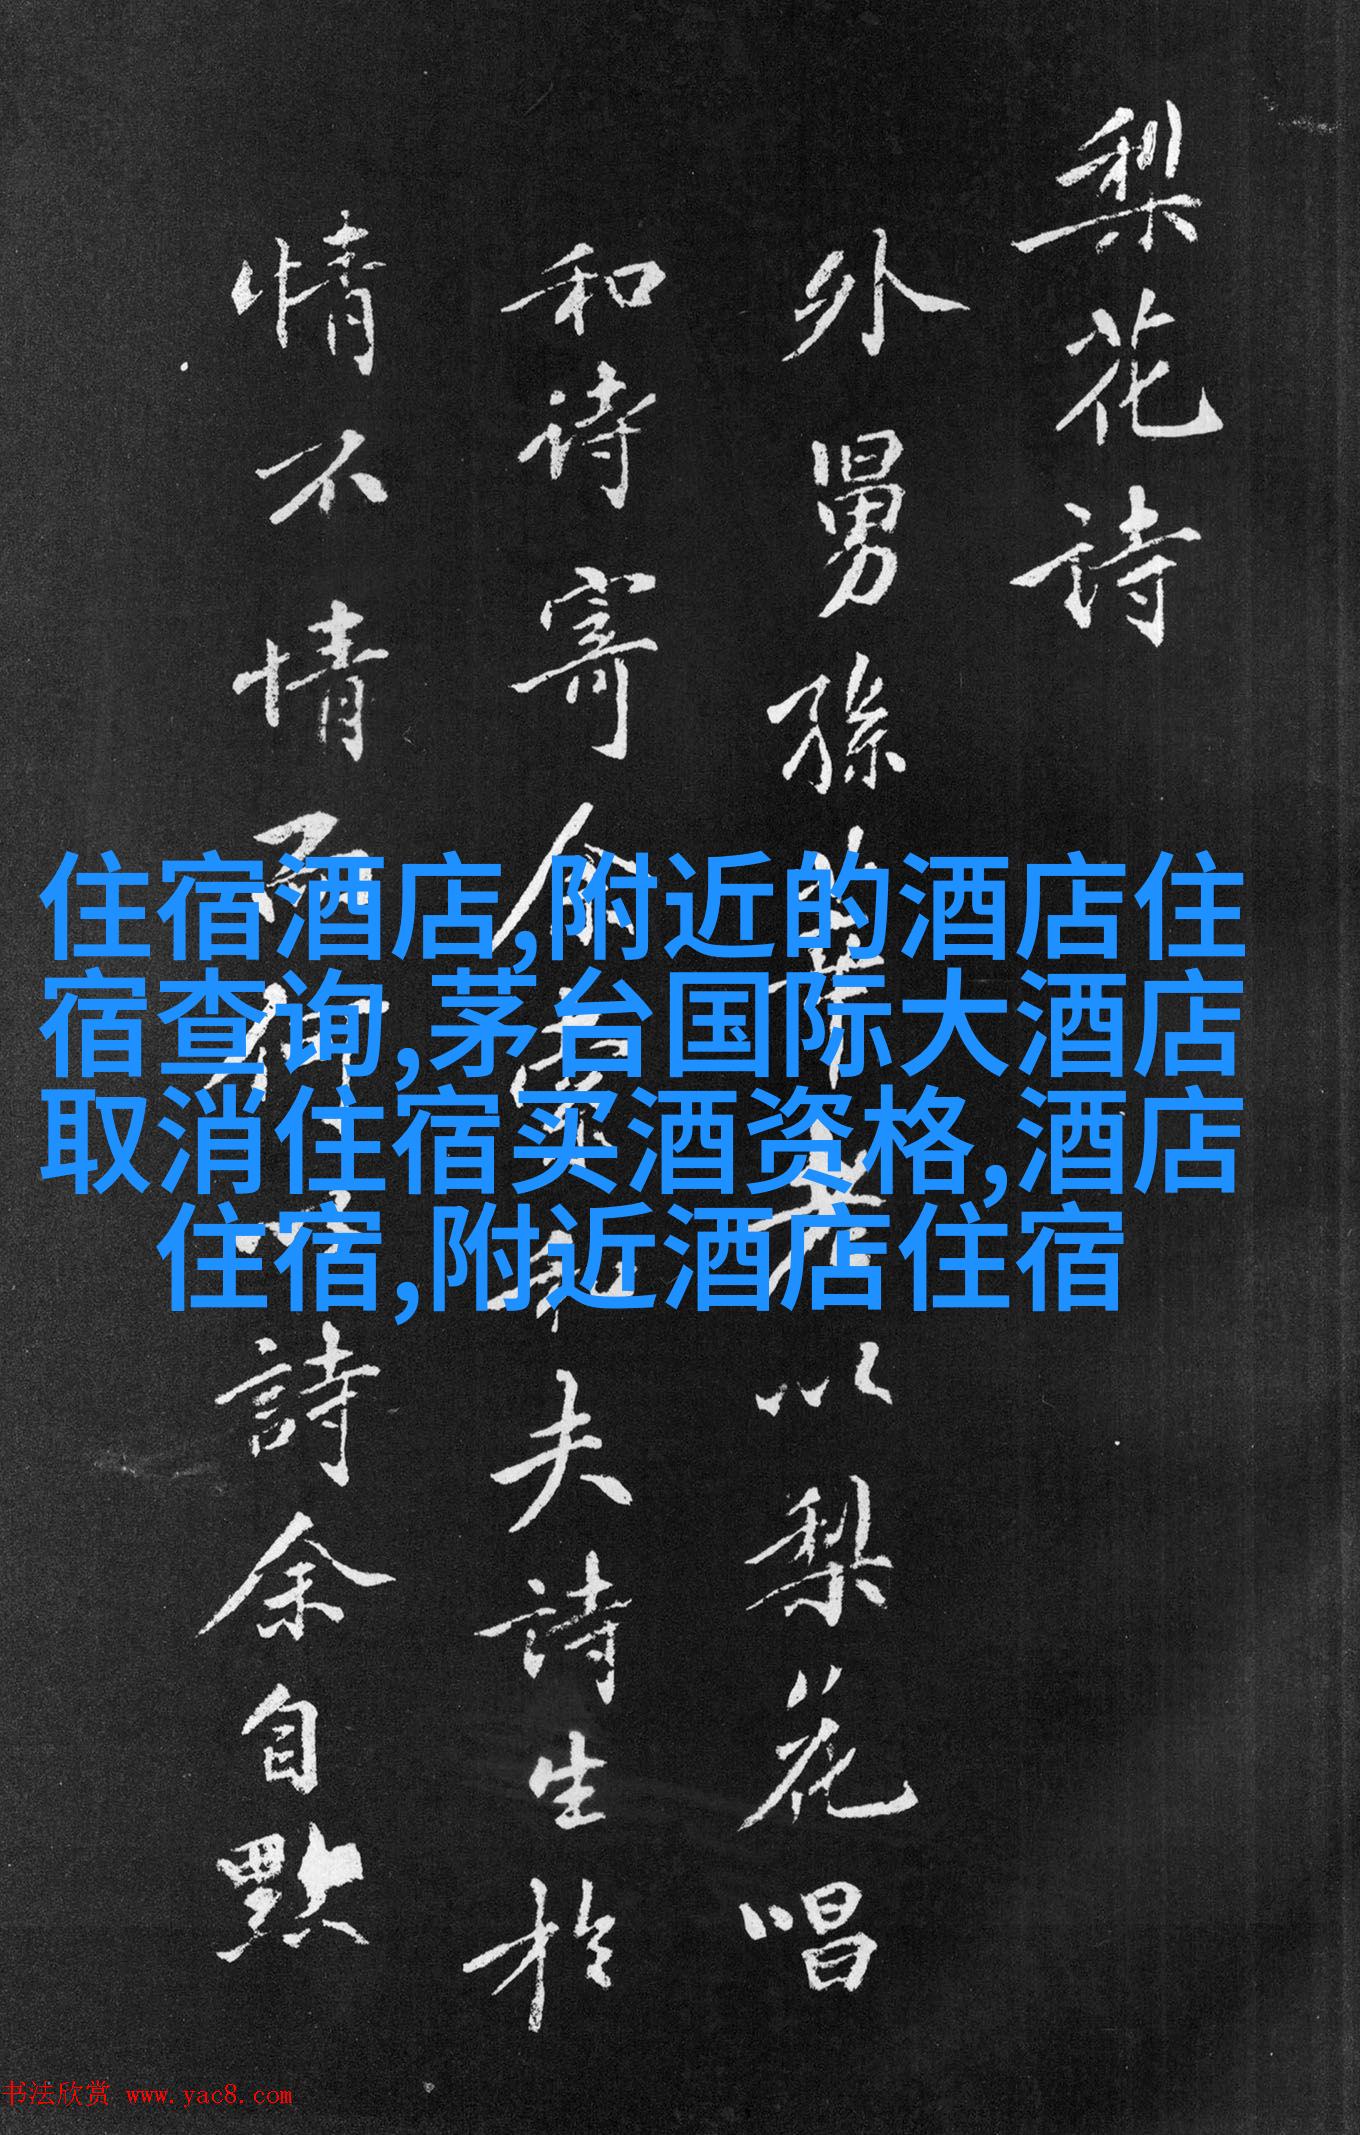 梨花詩
外舅孫莘老以梨花唱
和詩寄余索和夫詩生於
情不情而何以詩余自黙
住宿酒店,附近的酒店住
宿查询,茅台国际大酒店
取消住宿买酒资格,酒店
住宿,附近酒店住宿
书法欣赏 www.yac8.com